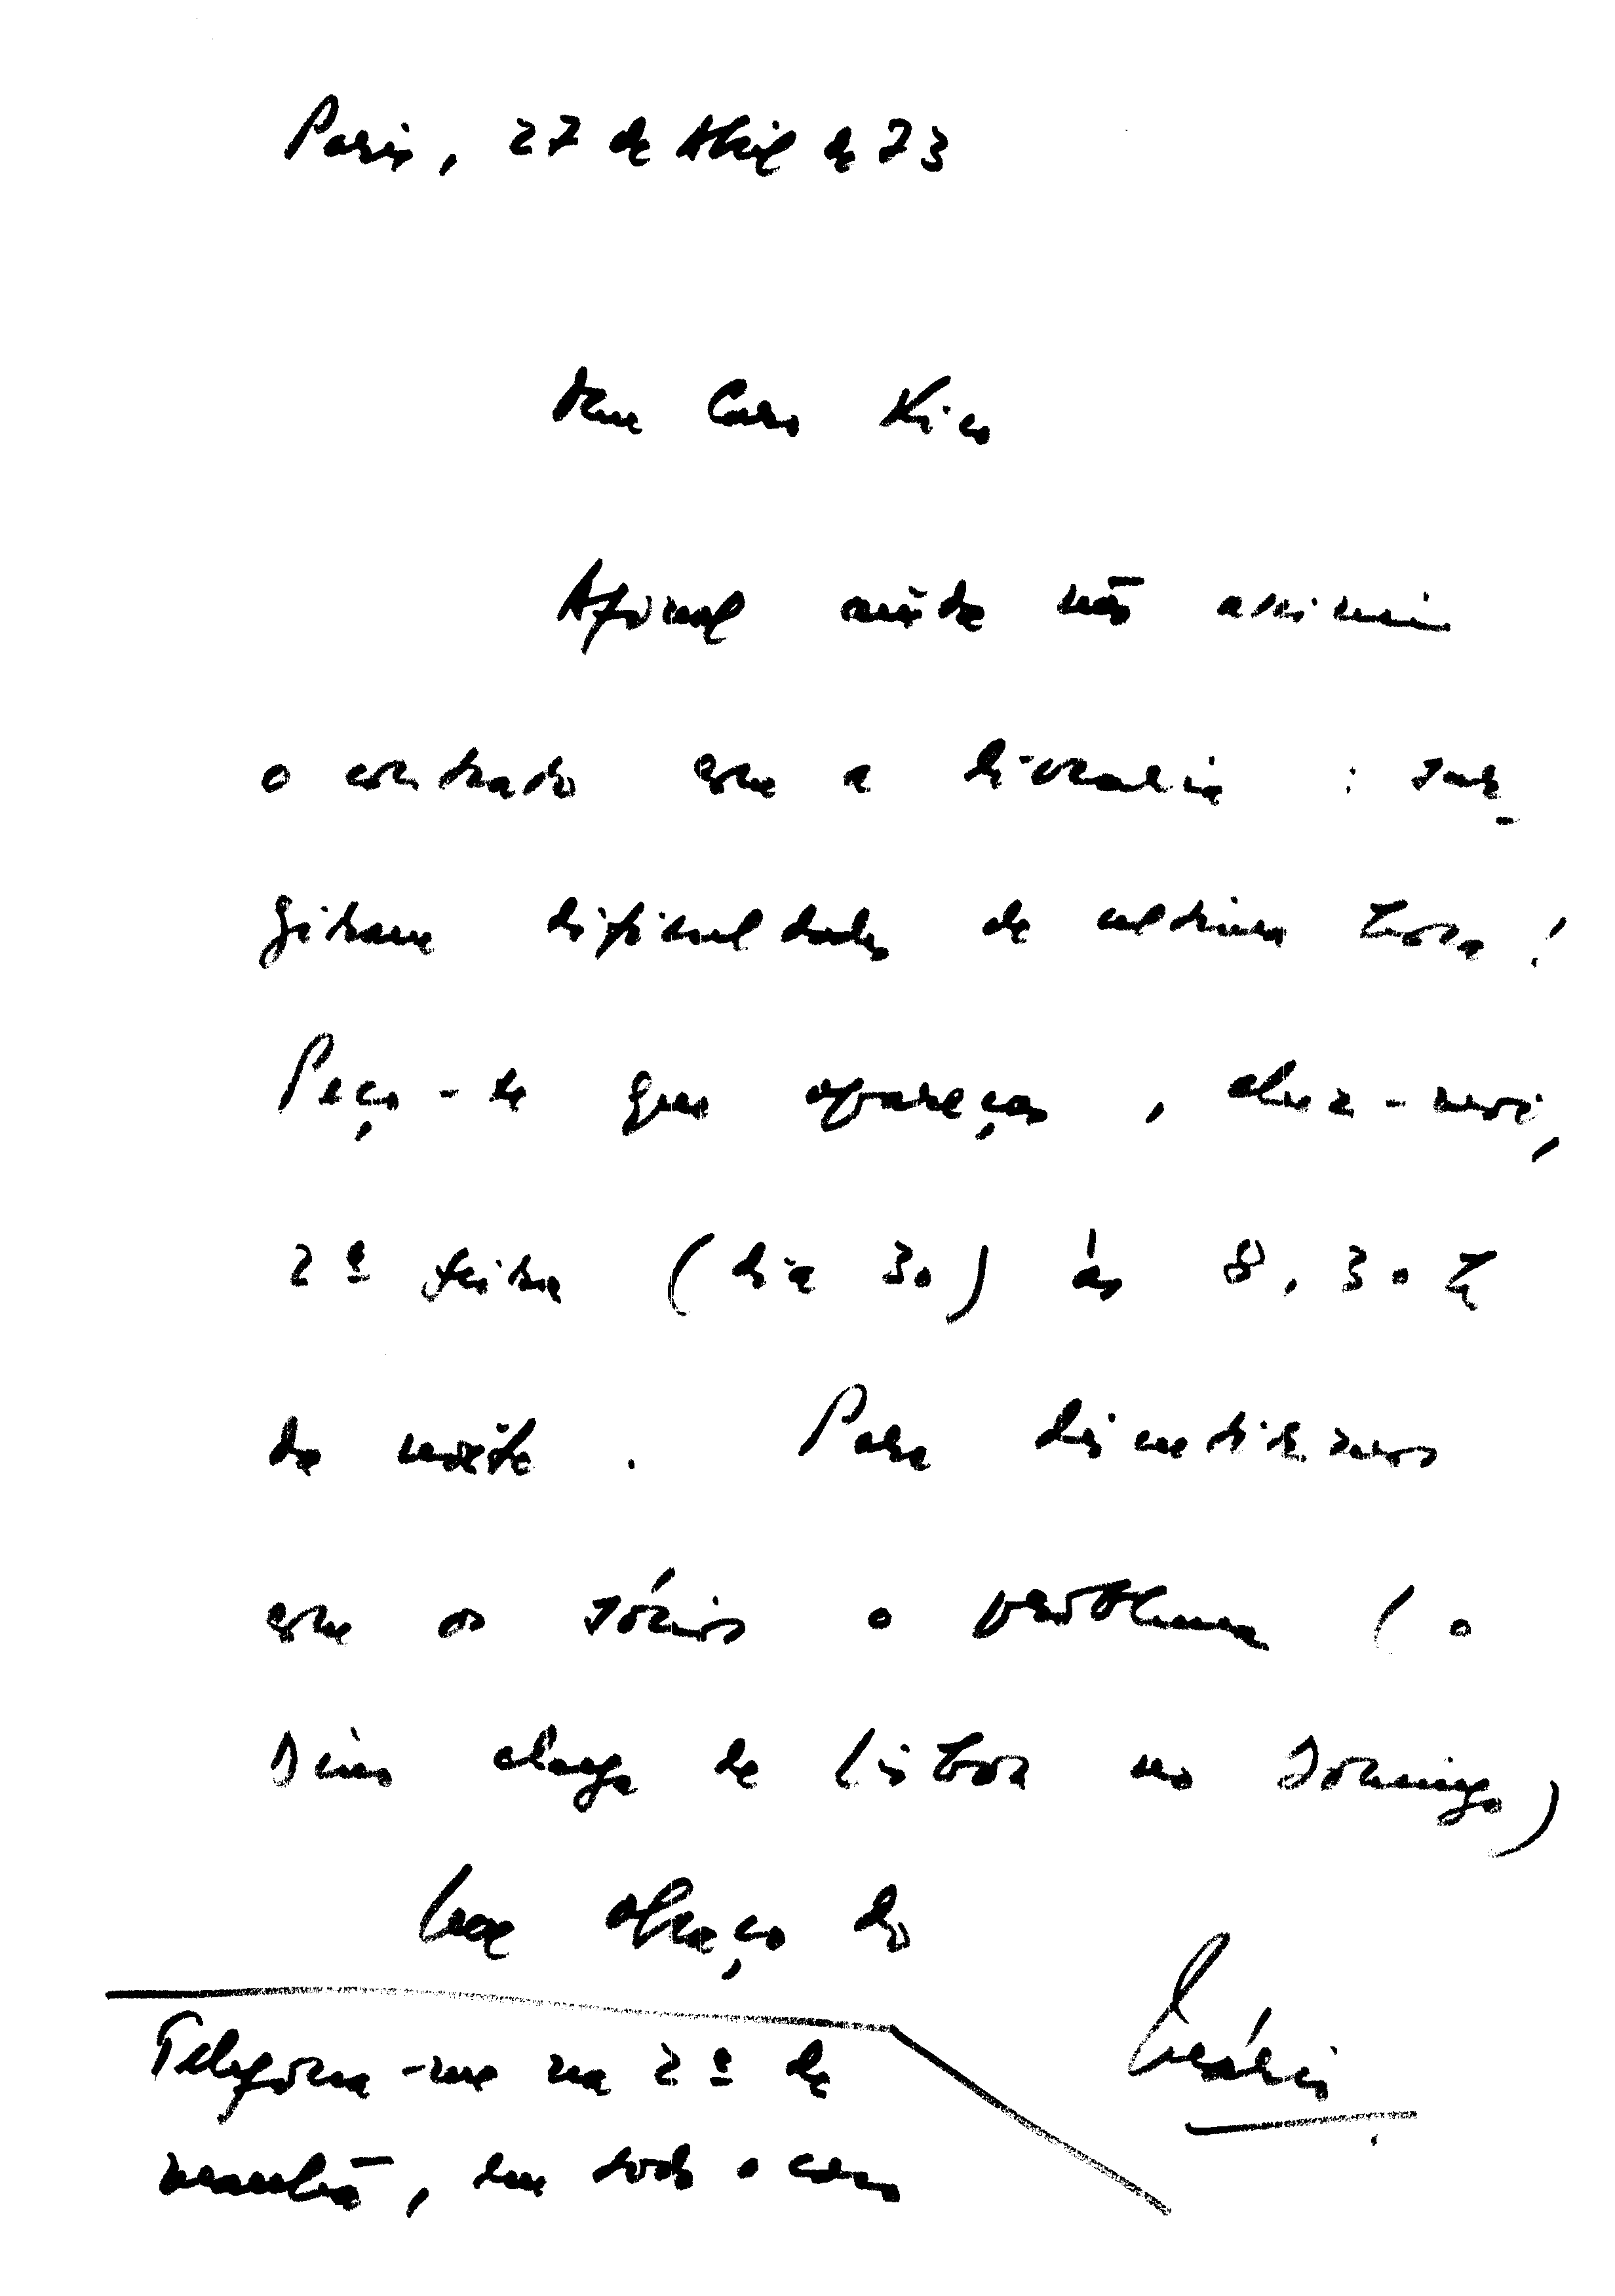 Paris, 27 de Abril de 73
Meu Caro Kico
Afinal ainda não assinei
o contrado com a livraria : sur-
giram dificuldades de ultima hora!
Peço-te que apareças, chez-moi,
2ª feira (dia 30) ás 8,30 h
da noite. Para discutirmos
com os sócios o problema (o
Dias chega de Lisboa no Domingo)
Um abraço do
Mário
Telefona-me na 2ª de
manhã, em todo o caso